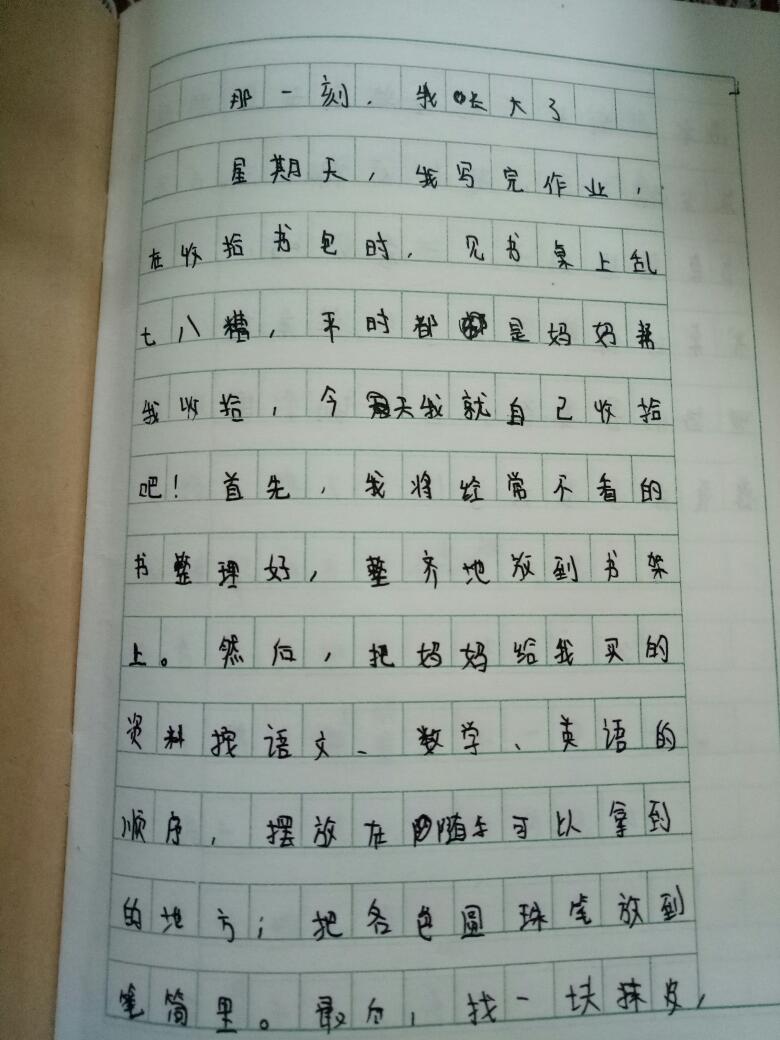 那一刻，我长大了
星期天，我写完作业，
在收拾书包时，见书桌上乱
七八糟，平时都是妈妈帮
我收拾，今天我就自己收拾
吧！首先，我将经常不看的
书整理好，整齐地放到书架
上。然后，把妈妈给我买的
资料按语文、数学、英语的
顺序，摆放在随手可以拿到
的地方；把各色圆珠笔放到
笔筒里。最后，找一块抹皮，